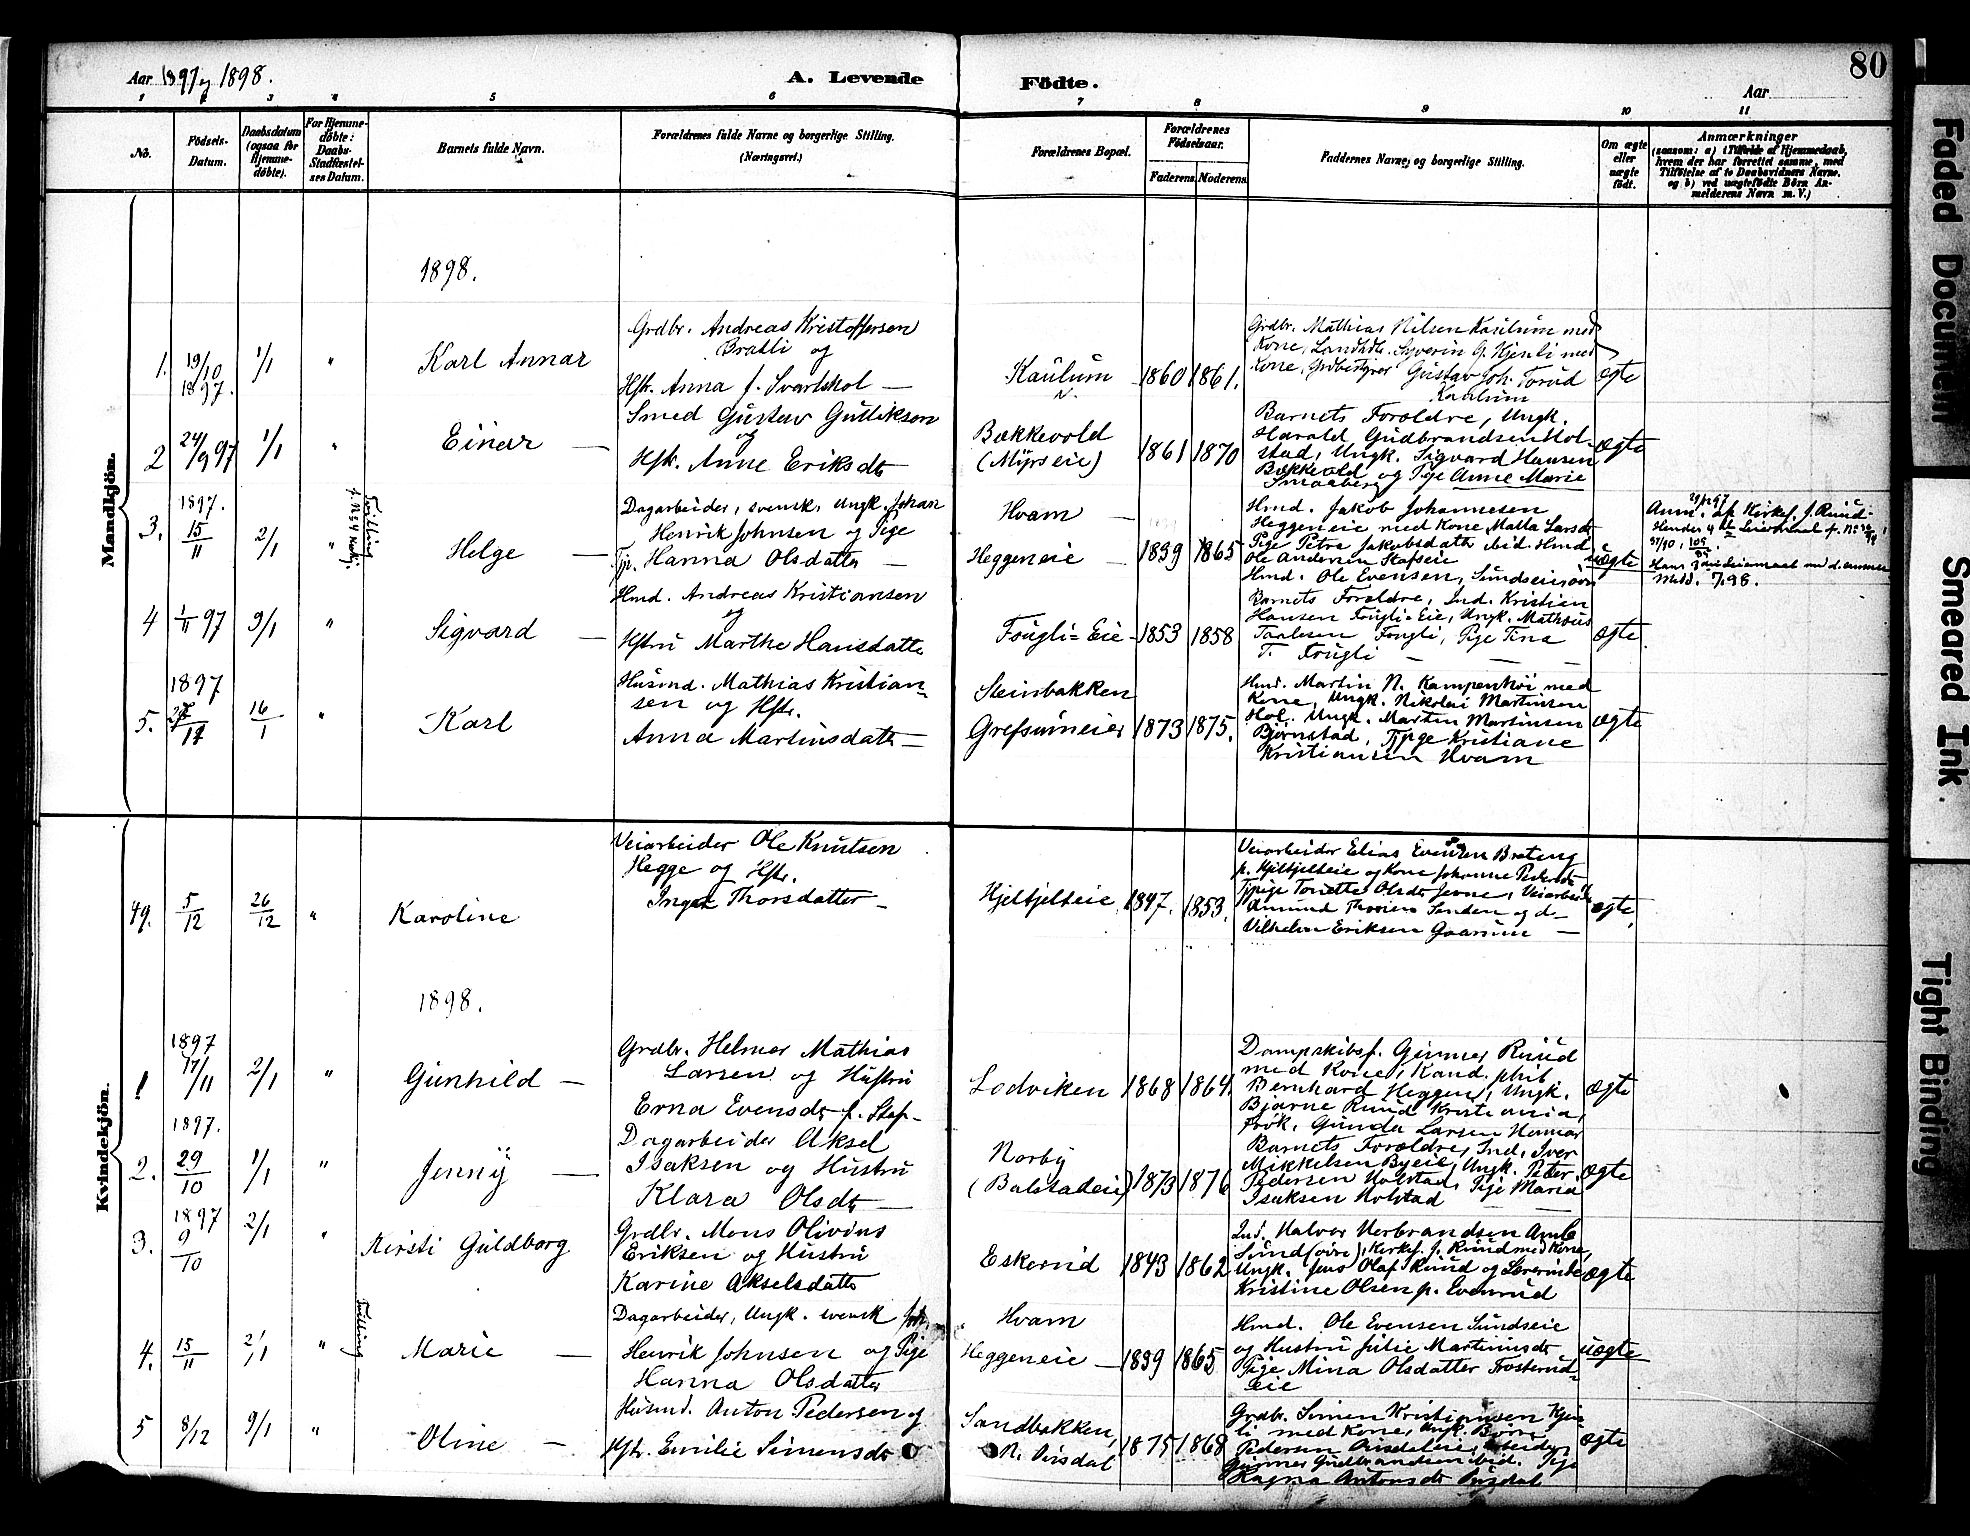 Aar 1897 og 1898.
A. Levende Födte.
Aar
80
1 2 3 4 5 6 7 8 9 10 11
No.
Födsels-Datum.
Daabsdatum (ogsaa for Hjemme-döbte).
For Hjemme-döbte: Daabs-Stadfæstel-ses Datum.
Barnets fulde Navn.
Forældrenes fulde Navne og borgerlige Stilling. (Næringsvei.)
Forældrenes Bopæl.
Forældrenes Födselsaar.
Faderens. Moderens.
Faddernes Navne, og borgerlige Stilling.
Om ægte eller uægte födt.
Anmærkninger
(saasom: a) i Tilfælde af Hjemmedaab,
hvem der har forrettet samme, med
Tilföielse af to Daabsvidners Navne.
og b) ved uægtefödte Börn An-
melderens Navn m. V.)
Mandkjön.
1898.
1. 19/10 1897. 1/1 " Karl Annar
Grdbr. Andreas Kristoffersen
Bratli og
Hstr. Anna f. Svartskol —
Kaulum 1860 1861.
Grdbr. Mathias Nilsen Kaulum med
Kone, Landhdl. Syverin G. Hjenli med
Kone, Grdbestyrer Gustav Joh. Torud
Kaulum
ægte
2 24/9 97 1/1 " Einar —
Smed Gustav Gulliksen
og
Hstr. Anne Eriksdtr
Bækkevold
(Myrseie)
1861 1870
Barnets Foreldre, Ungk.
Harald Gudbrandsen Hol-
stad, Ungk. Sigvard Hansen
Bækkevold og Pige Anne Marie
Smaaberg
ægte
3. 1897. 15/11 2/1 " Tvilling Helge —
Dagarbeider, svensk, Ungk. Johan
Henrik Johnsen og Pige
Tjp. Hanna Olsdatter —
Hvam —
Heggeneie — 1839 1865
Hmd. Jakob Johannesen
Heggeneie med Kone Matta Larsdtr
Pige Petra Jakobsdatter ibid. Hmd
Ole Andersen Stafseie
Hmd. Ole Evensen, Sundseie
uægte
Anm. af Kirkes. f. Ruud.
4 1/11 97 9/1 " Sigvard —
Hmd. Andreas Kristiansen
og
Hstru Marthe Hansdatter
Fougli=Eie 1853 1858
Barnets Foreldre, Ind. Kristian
Hansen Fougli=Eie, Ungk. Mathæus
Taalesen Fougli, Pige Tina
T. Fougli — — —
ægte
5. 1897 16/1 " Karl
Husmd. Mathias Kristian-
sen og Hstr.
Anna Martinsdatter —
Steinbakken
Grefsrumeier 1873 1875.
Hmd. Martin N. Kampenhöi med
Kone, Ungk. Nikolai Martinsen
Hol, Ungk. Martin Martinsen
Björnstad, Tjpge Kristiane
Kristiansen Hvam
ægte
Kvindekjön.
49. 5/12 26/12 " Karoline
Veiarbeider Ole Knutsen
Hegge og Hstr.
Inger Thorsdatter —
Hjeltjelteie 1847. 1853.
Veiarbeider Elias Evensen Brateng
p. Hjeltjelteie og Kone Johanne Pedersdtr
Tjpige Tonette Olsdtr Jevne, Veiarbeider
Amund Thorsen Sanden og d—
Vilhelm Eriksen Gaarum —
ægte.
1898.
1 1897 17/11 2/1 " Gunhild —
Grdbr. Helmer Mathias
Larsen og Hustru
Erna Evensdtr f. Staf-
Lodviken 1868 1864.
Dampskibsf. Gunner Ruud
med Kone, Kand. phil
Bernhard Heggen, Ungk.
Bjarne Ruud Kristiania,
Frök. Gunda Larsen Hamar
ægte
2. 1897. 29/10 1/1 " Jenny —
Dagarbeider Aksel
Isaksen og Hustru
Klara Olsdtr —
Norby
(Balstadeie) 1873 1876
Barnets Foreldre, Ind. Iver
Mikkelsen Byeie, Ungk. Peter
Pedersen Holstad, Pige Maria
Isaksen Holstad —
ægte
3. 1897 9/10 2/1 " Kirsti Guldborg
Grdbr. Mons Olivius
Eriksen og Hustru
Karine Akselsdatter
Eskerud 1843 1862
Ind. Halvor Herbrandsen Amb
Sund (övre), Kirkes. f. Ruud med Kone,
Ungk. Jens Olaf Ruud og Lærerinde
Kristine Olsen p. Evenrud
ægte
4. 15/11 2/1 " Tvilling Marie —
Dagarbeider, Ungk. svensk Joh.
Henrik Johnsen og Pige
Hanna Olsdatter
Hvam
Heggeneie — 1839 1865
Hmd. Ole Evensen Sundseie
og Hustru Julie Martinusdtr
Pige Mina Olsdatter Frosterud-
Eie
uægte
5 8/12 9/1 " Oline —
Husmd. Anton Pedersen og
Hstr. Emilie Simensdtr
Sandbakken,
N. Oirsdal 1875 1868
Grdbr. Simen Kristiansen Hjen-
li med Kone, Ungk. Björn
Pedersen
Gunner Gudbrandsen ibid. Pige
Ragna Antonsdtr
ægte
Faded Document
Smeared Ink
Tight Binding